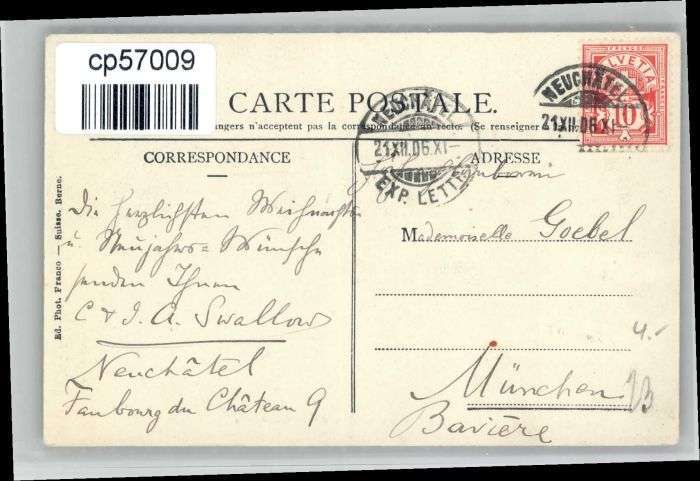 cp57009
CARTE POSTALE.
angers n'acceptent pas la correspondance au recto. (Se renseigner
HELVETIA
10
NEUCHÂTEL
21XII.06.XI–
EXP. LETTR.
NEUCHÂTEL
21XII.06.XI–
CORRESPONDANCE
ADRESSE
Die herzlichsten Weihnachts-
u. Neujahrs=Wünsche
senden Ihnen
C & J. A. Swallow
Neuchâtel
Faubourg du Château 9
Mademoiselle Goebel
4.-
München
Bavière
Ed. Phot. Franco — Suisse, Berne.